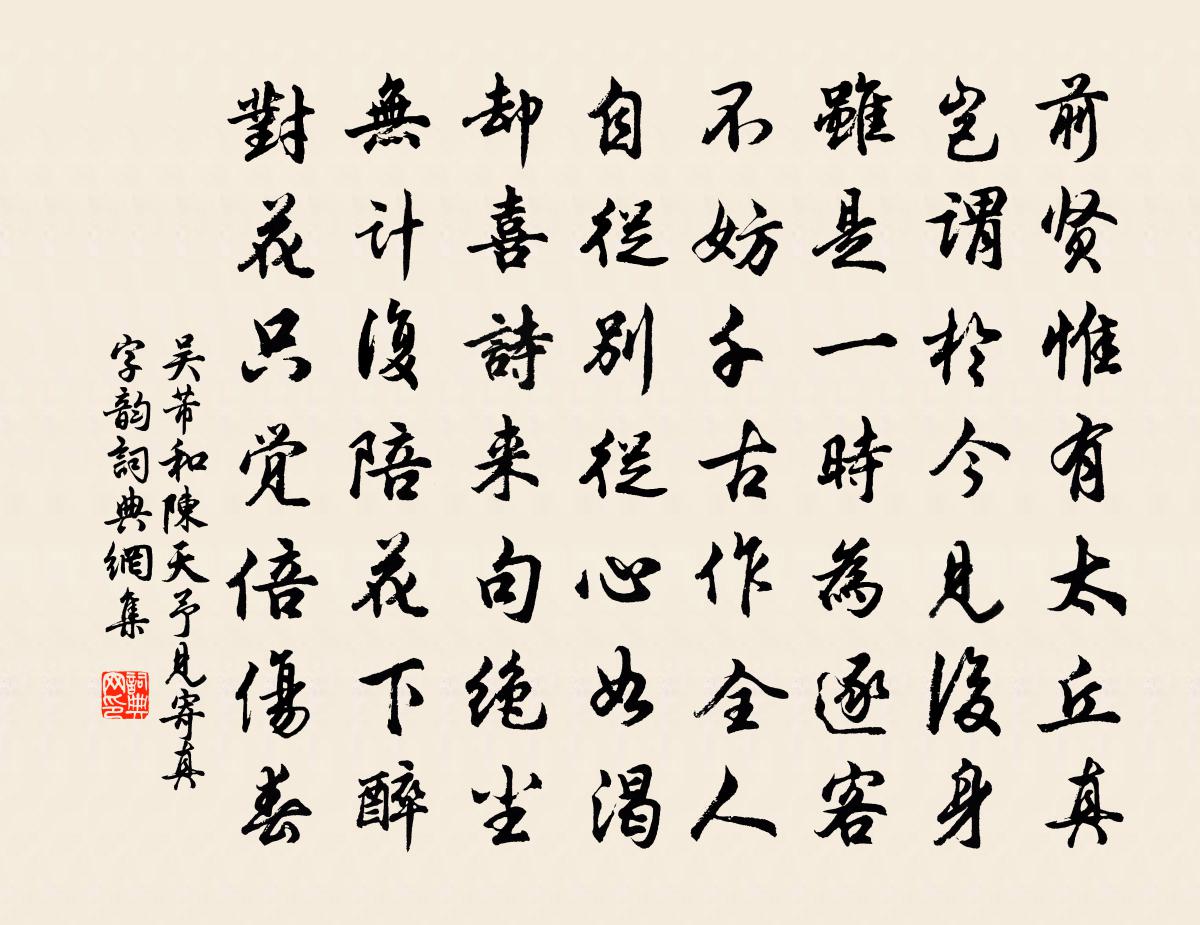 前贤惟有太丘真
岂谓於今見後身
雖是一時為逐客
不妨千古作全人
自從别從心如渴
却喜詩来句绝尘
無计復陪花下醉
對花只觉倍傷春
吴芾和陳天予見寄真
字韵詞典網集
詞典网印